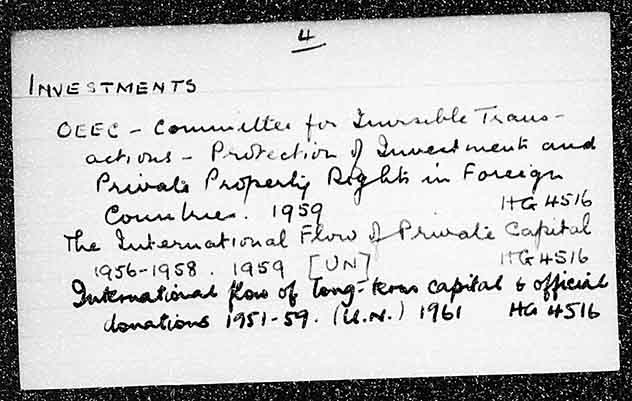 4
INVESTMENTS
OEEC - Committee for Invisible Trans-
actions - Protection of Investments and
Private Property Rights in Foreign
Countries. 1959 HG 4516
The International Flow of Private Capital
1956-1958. 1959 [UN] HG 4516
International flow of long-term capital & official
donations 1951-59. (U.N.) 1961 HG 4516